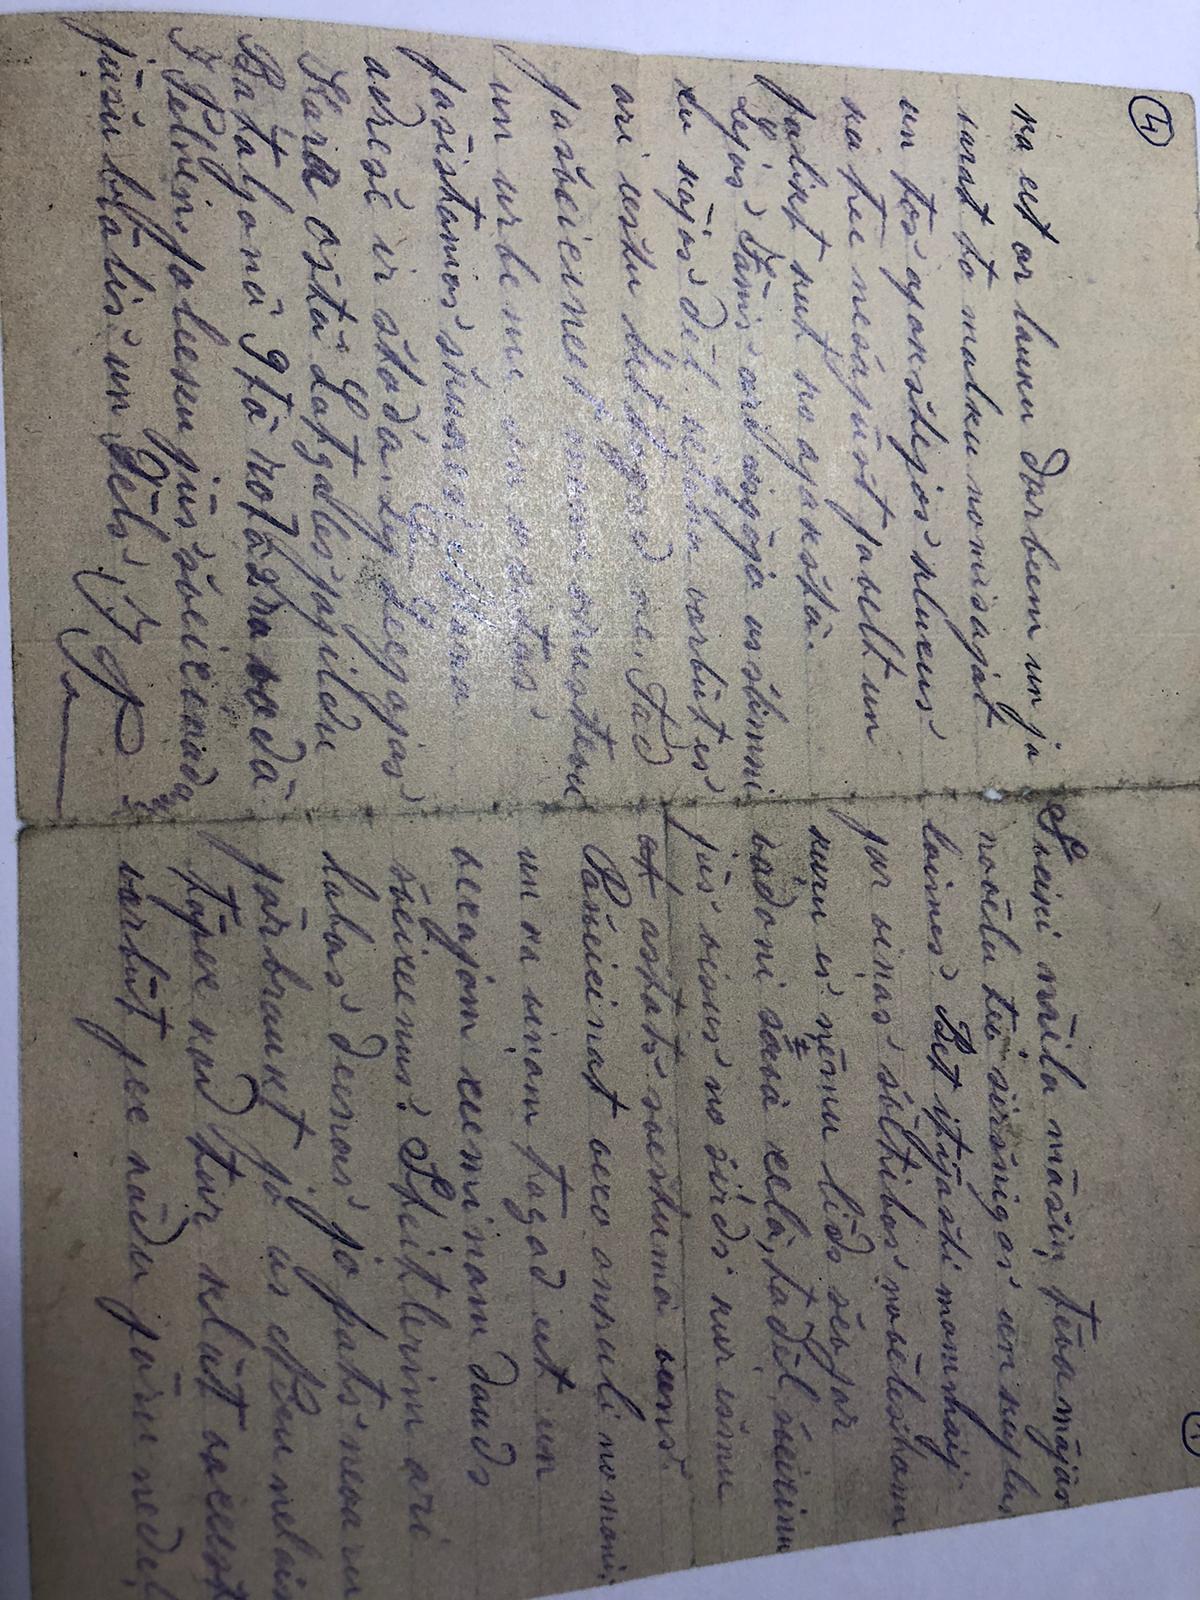 4
ka eet ar lauku darbeem un ja
varat to malku nomisajat
un tos apakstejos klucus
ka tee nesapūst pavelt un
palikt kut ko apakstā.
Lejas Jānis ari aisgāja us slimni
cu kājas dēļ. vēlaka varbūt es
ari eeshu bet tagad ne. Tad
pasveicineet mani krustevu
un urbemu un
pasistamos Mana
adrese ir štada.
Kara Ostā Latgales papildu
Bataljonā 9tā rotā 2ra vadā
J Pelnen. paleeku jūs sveicinadams
jūsu brālis un Dēls J P
Sveiki mīļa māsiņ, tēva mājās
novēlu tev sirsnigas un kuplas
laimes. Bet it īpashi mammaij
par viņas svētibas novēleshanu
kuru es ņēmu līds sev par
vadoni sāvā ceļā, tadēļ, sveicinu
jūs visus no sirds kur esmu
astats svestumā veens.
Pasveicinat veco onkuli no manis
un ka viņam tagad eet un
vecajam ceemiņam dauds
sveiceenus. Steitlerim ari
labas deenas jo pats nevaru
pārbraukt jo us Nicu nelais
tāpec kad tur klāt
varbūt pec kādu pāru nedeļ